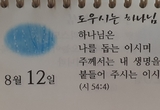 도우시는 하나님
하나님은
나를 돕는 이시며
주께서는 내 생명을
붙들어 주시는 이시
(시 54:4)
8월 12일